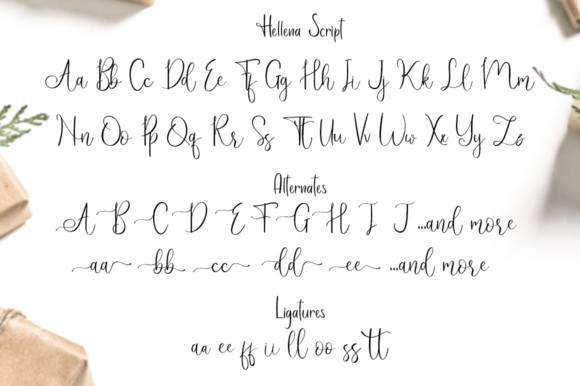 Hellena Script
Aa Bb Cc Dd Ee Ff Gg Hh Ii Jj Kk Ll Mm
Nn Oo Pp Qq Rr Ss Tt Uu Vv Ww Xx Yy Zz
Alternates
A B C D E F G H I J ...and more
aa bb cc dd ee ...and more
Ligatures
aa ee ff ii ll oo ss tt